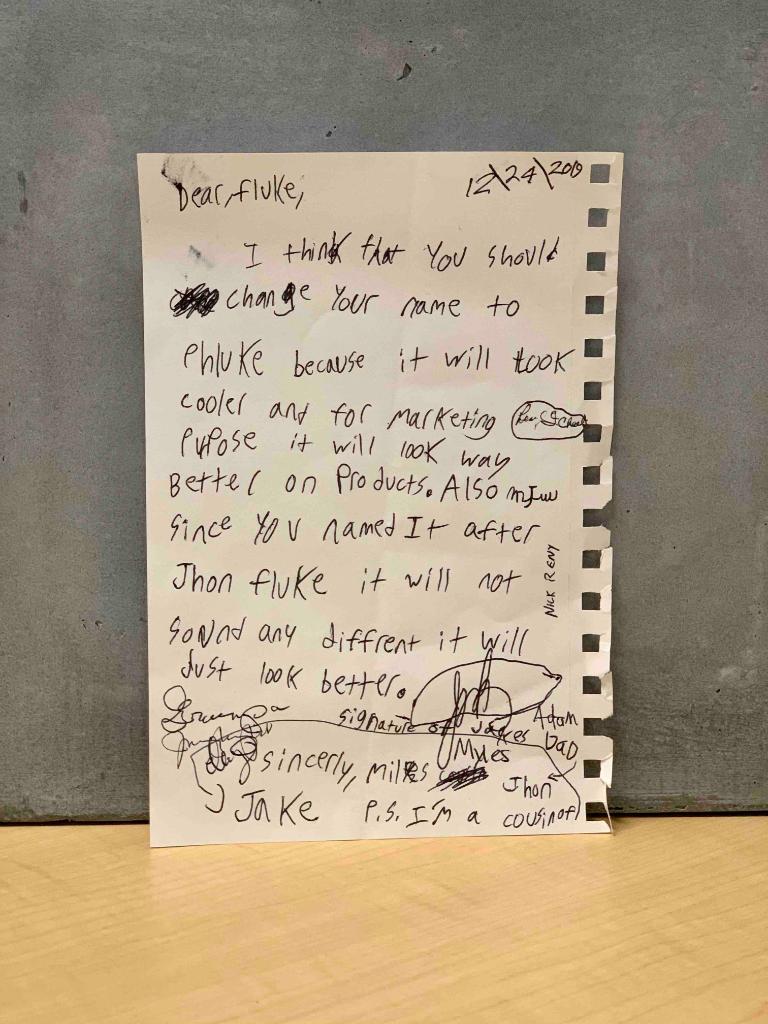 Dear, fluke,
12\24\2019
I think that You should
change Your name to
Phluke because it will look
cooler and for marketing
Pupose it will look way
Better on Products. Also
since You named It after
Jhon fluke it will not
NICK RENY
sound any diffrent it will
Just look better.
signature of Jakes
Adam
DAD
Myles
sincerly, Miles
Jhon
JAKE P.S. I'm a cousin of